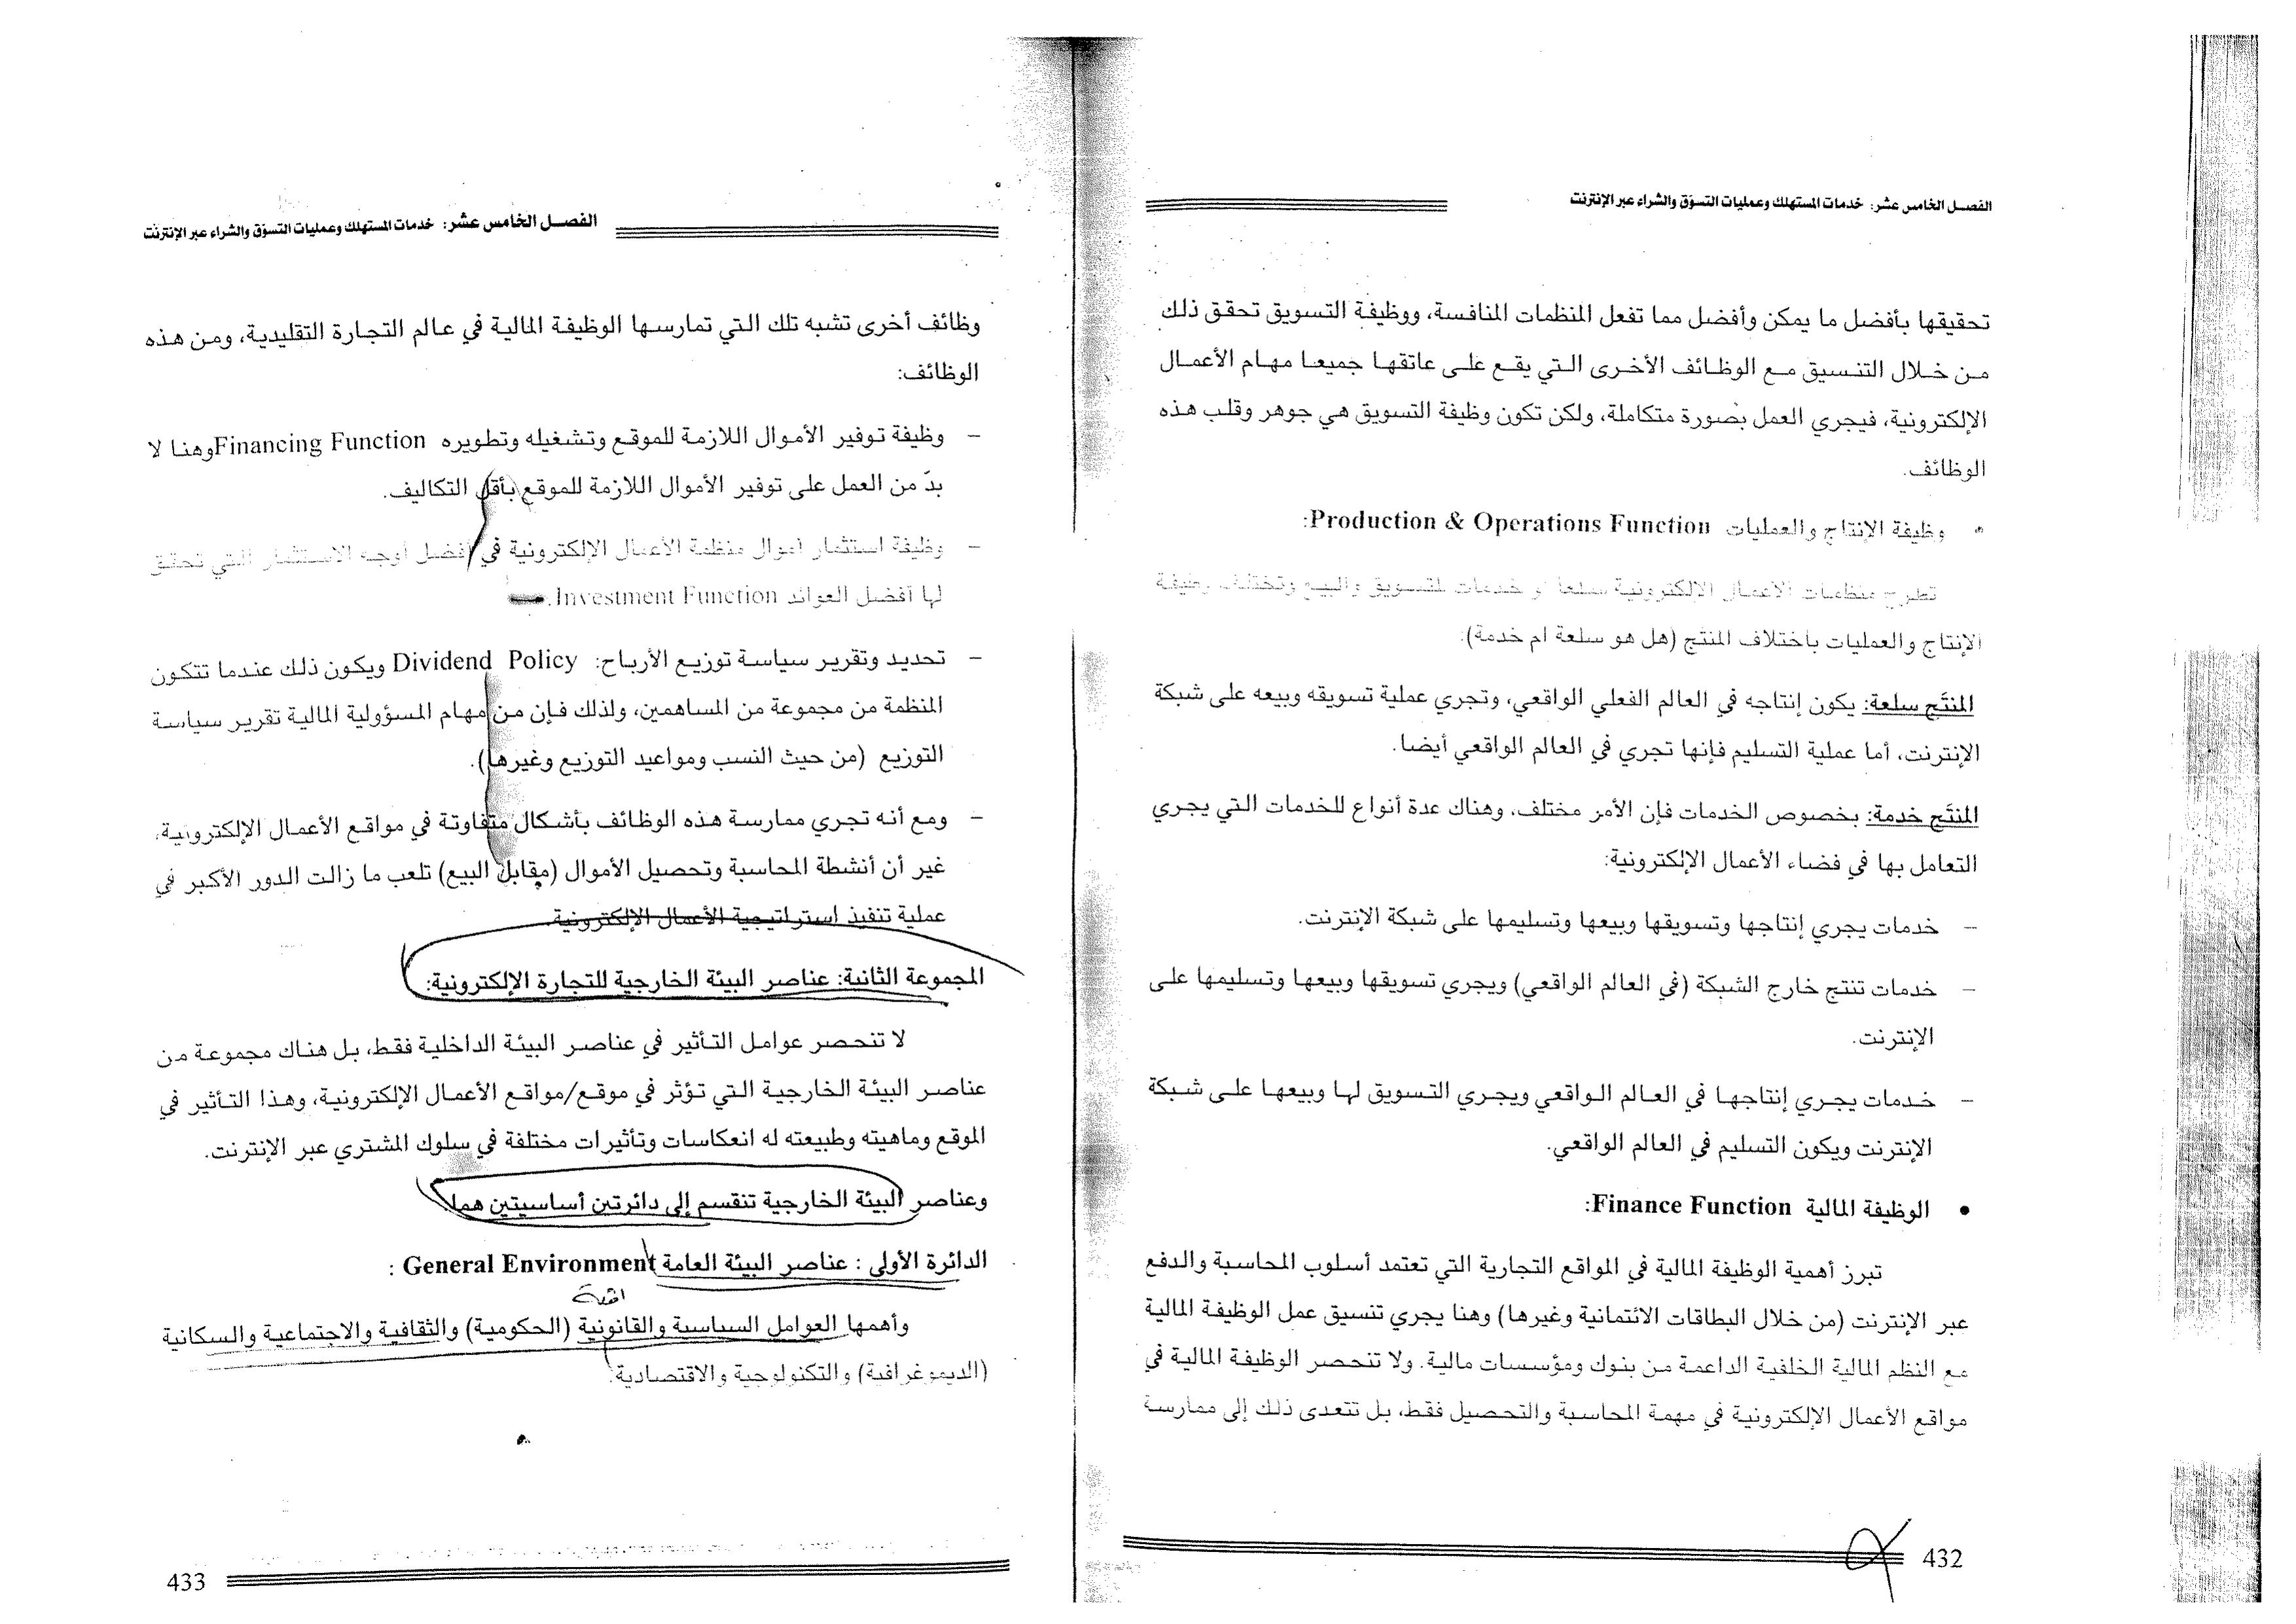 الفصل الخامس عشر: خدمات المستهلك وعمليات التسوّق والشراء عبر الإنترنت
تحقيقها بأفضل ما يمكن وأفضل مما تفعل المنظمات المنافسة، ووظيفة التسويق تحقق ذلك
من خلال التنسيق مع الوظائف الأخرى التي يقع على عاتقها جميعا مهام الأعمال
الإلكترونية، فيجري العمل بصورة متكاملة، ولكن تكون وظيفة التسويق هي جوهر وقلب هذه
الوظائف.
• وظيفة الإنتاج والعمليات Production & Operations Function:
تطرح منظمات الأعمال الإلكترونية سلعا أو خدمات للتسويق والبيع وتختلف وظيفة
الإنتاج والعمليات باختلاف المنتج (هل هو سلعة ام خدمة):
المنتَج سلعة: يكون إنتاجه في العالم الفعلي الواقعي، وتجري عملية تسويقه وبيعه على شبكة
الإنترنت، أما عملية التسليم فإنها تجري في العالم الواقعي أيضا.
المنتَج خدمة: بخصوص الخدمات فإن الأمر مختلف، وهناك عدة أنواع للخدمات التي يجري
التعامل بها في فضاء الأعمال الإلكترونية:
– خدمات يجري إنتاجها وتسويقها وبيعها وتسليمها على شبكة الإنترنت.
– خدمات تنتج خارج الشبكة (في العالم الواقعي) ويجري تسويقها وبيعها وتسليمها على
الإنترنت.
– خدمات يجري إنتاجها في العالم الواقعي ويجري التسويق لها وبيعها على شبكة
الإنترنت ويكون التسليم في العالم الواقعي.
• الوظيفة المالية Finance Function:
تبرز أهمية الوظيفة المالية في المواقع التجارية التي تعتمد أسلوب المحاسبة والدفع
عبر الإنترنت (من خلال البطاقات الائتمانية وغيرها) وهنا يجري تنسيق عمل الوظيفة المالية
مع النظم المالية الخلفية الداعمة من بنوك ومؤسسات مالية. ولا تنحصر الوظيفة المالية في
مواقع الأعمال الإلكترونية في مهمة المحاسبة والتحصيل فقط، بل تتعدى ذلك إلى ممارسة
432
الفصل الخامس عشر: خدمات المستهلك وعمليات التسوّق والشراء عبر الإنترنت
وظائف أخرى تشبه تلك التي تمارسها الوظيفة المالية في عالم التجارة التقليدية، ومن هذه
الوظائف:
– وظيفة توفير الأموال اللازمة للموقع وتشغيله وتطويره Financing Function وهنا لا
بدّ من العمل على توفير الأموال اللازمة للموقع بأقل التكاليف.
– وظيفة استثمار اموال منظمة الأعمال الإلكترونية في أفضل أوجه الاستثمار التي تحقق
لها أفضل العوائد Investment Function.
– تحديد وتقرير سياسة توزيع الأرباح: Dividend Policy ويكون ذلك عندما تتكون
المنظمة من مجموعة من المساهمين، ولذلك فإن من مهام المسؤولية المالية تقرير سياسة
التوزيع (من حيث النسب ومواعيد التوزيع وغيرها).
– ومع أنه تجري ممارسة هذه الوظائف بأشكال متفاوتة في مواقع الأعمال الإلكترونية،
غير أن أنشطة المحاسبة وتحصيل الأموال (مقابل البيع) تلعب ما زالت الدور الأكبر في
عملية تنفيذ استراتيجية الأعمال الإلكترونية.
المجموعة الثانية: عناصر البيئة الخارجية للتجارة الإلكترونية:
لا تنحصر عوامل التأثير في عناصر البيئة الداخلية فقط، بل هناك مجموعة من
عناصر البيئة الخارجية التي تؤثر في موقع/مواقع الأعمال الإلكترونية، وهذا التأثير في
الموقع وماهيته وطبيعته له انعكاسات وتأثيرات مختلفة في سلوك المشتري عبر الإنترنت.
وعناصر البيئة الخارجية تنقسم إلى دائرتين أساسيتين هما
الدائرة الأولى : عناصر البيئة العامة General Environment :
وأهمها العوامل السياسية والقانونية (الحكومية) والثقافية والاجتماعية والسكانية
(الديموغرافية) والتكنولوجية والاقتصادية:
433